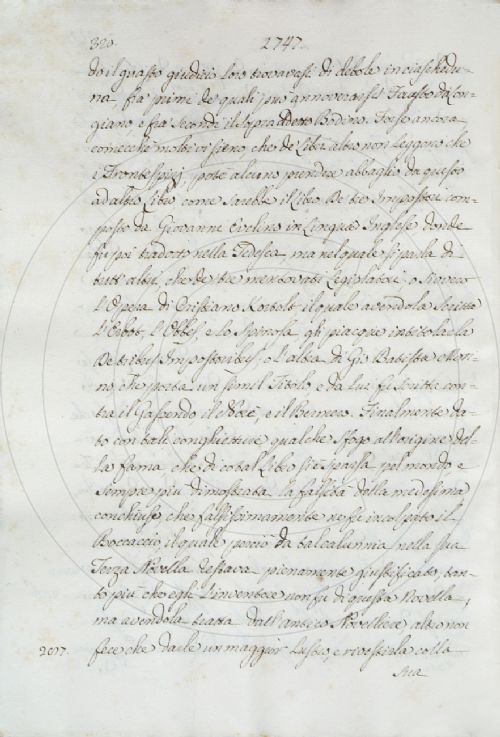 320. 2747.
do il guasto giudizio loro trovavasi di debole in ciaschedu-
na, fra primi de quali può annoverarsi Jacopo da Con-
giano, e fra secondi il sopraddetto Bodino. Forse ancora
comecche molti vi sieno che de Libri altro non leggono che
i Frontespizj, poté alcuno prendere abbaglio da questo
ad altro Libro, come sarebbe il Libro De tres Impostori com-
posto da Giovanni Evelino in Lingua Inglese donde
fu poi tradotto nella Tedesca, ma nel quale si parla di
tutt altri, che de tre mentovati Legislatori, o sivvero
l'Opera di Cristiano Kortolt, il quale avendola scritta
l'Erbert, l'Obbes, e lo Spinosa gli piacque intitolarla
De tribus Impostoribus, o l'altra di Gio Batista Mori-
no, che porta un simil Titolo e da Lui fu scritta con-
tra il Gassendo, il Neure, e il Bernero. Finalmente da-
to con tali conghietture qualche sfogo all'origine del-
la fama che di cotal Libro si è sparsa pel mondo e
sempre più dimostrata la falsità della medesima
conchiuse, che falsissimamente ne fu incolpato il
Boccaccio il quale perciò da tal calunnia nella sua
Terza Novella restava pienamente giustificato, tan-
to più che egli l'inventore non fu di questa Novella,
ma avendola tratta dall'antico Novelliere altro non
2077. fece che darle un maggior lustro, e rivestirla colla
sua